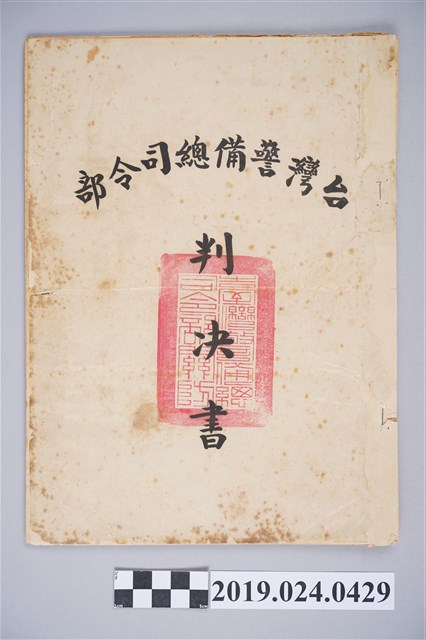 台灣警備總司令部
判決書
2019.024.0429